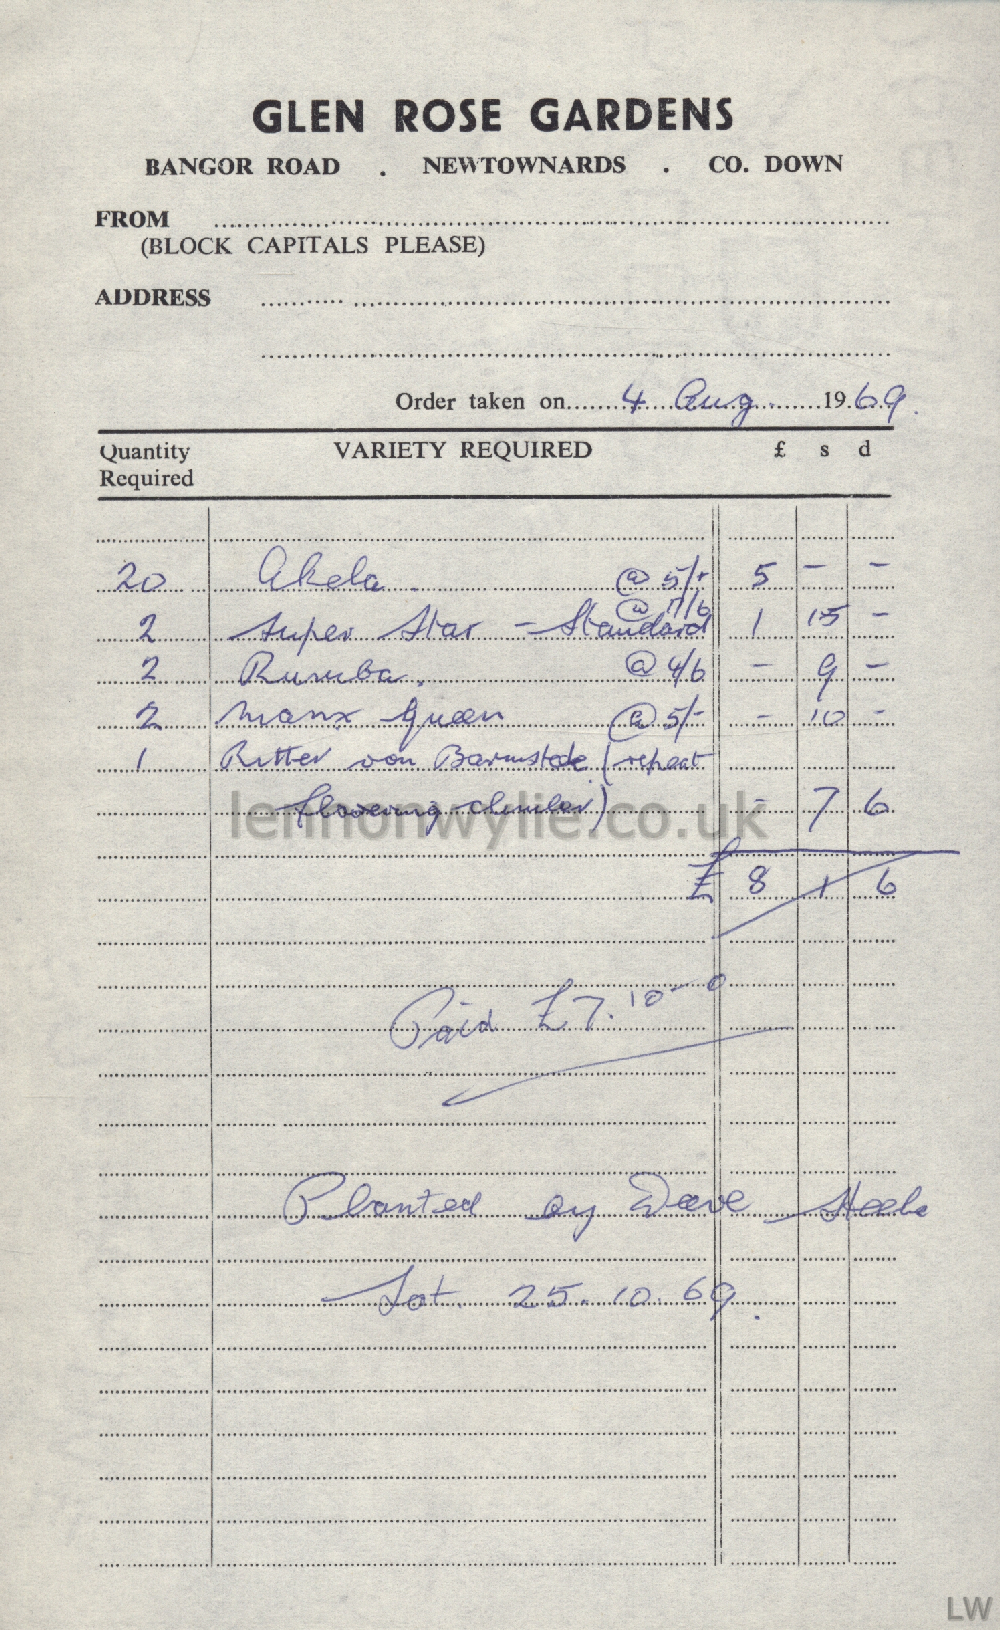 GLEN ROSE GARDENS
BANGOR ROAD . NEWTOWNARDS . CO. DOWN
FROM
(BLOCK CAPITALS PLEASE)
ADDRESS
Order taken on 4 Aug. 1969.
Quantity Required VARIETY REQUIRED £ s d
20 Akela @ 5/- 5 - -
2 Super Star - Standard @ 17/6 1 15 -
2 Rumba. @ 4/6 - 9 -
2 Manx Queen @ 5/- - 10 -
1 Ritter von Barmstede (repeat
flowering climber) - 7 6
£ 8 1 6
Paid £7.10-0
Planted by Dave Steele
Sat. 25.10.69.
lennonwylie.co.uk
LW